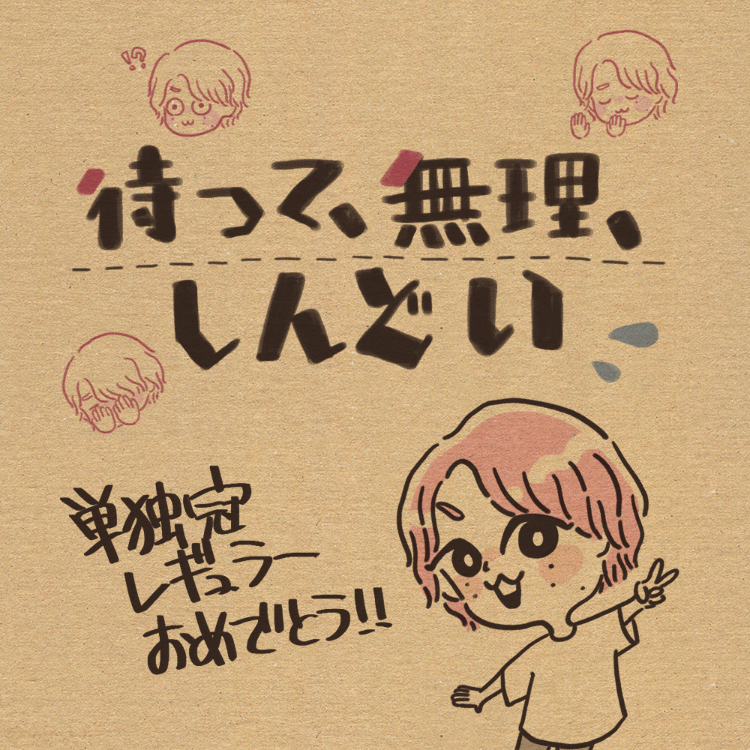 !?
待って、無理、
しんどい
単独定
レギュラー
おめでとう!!